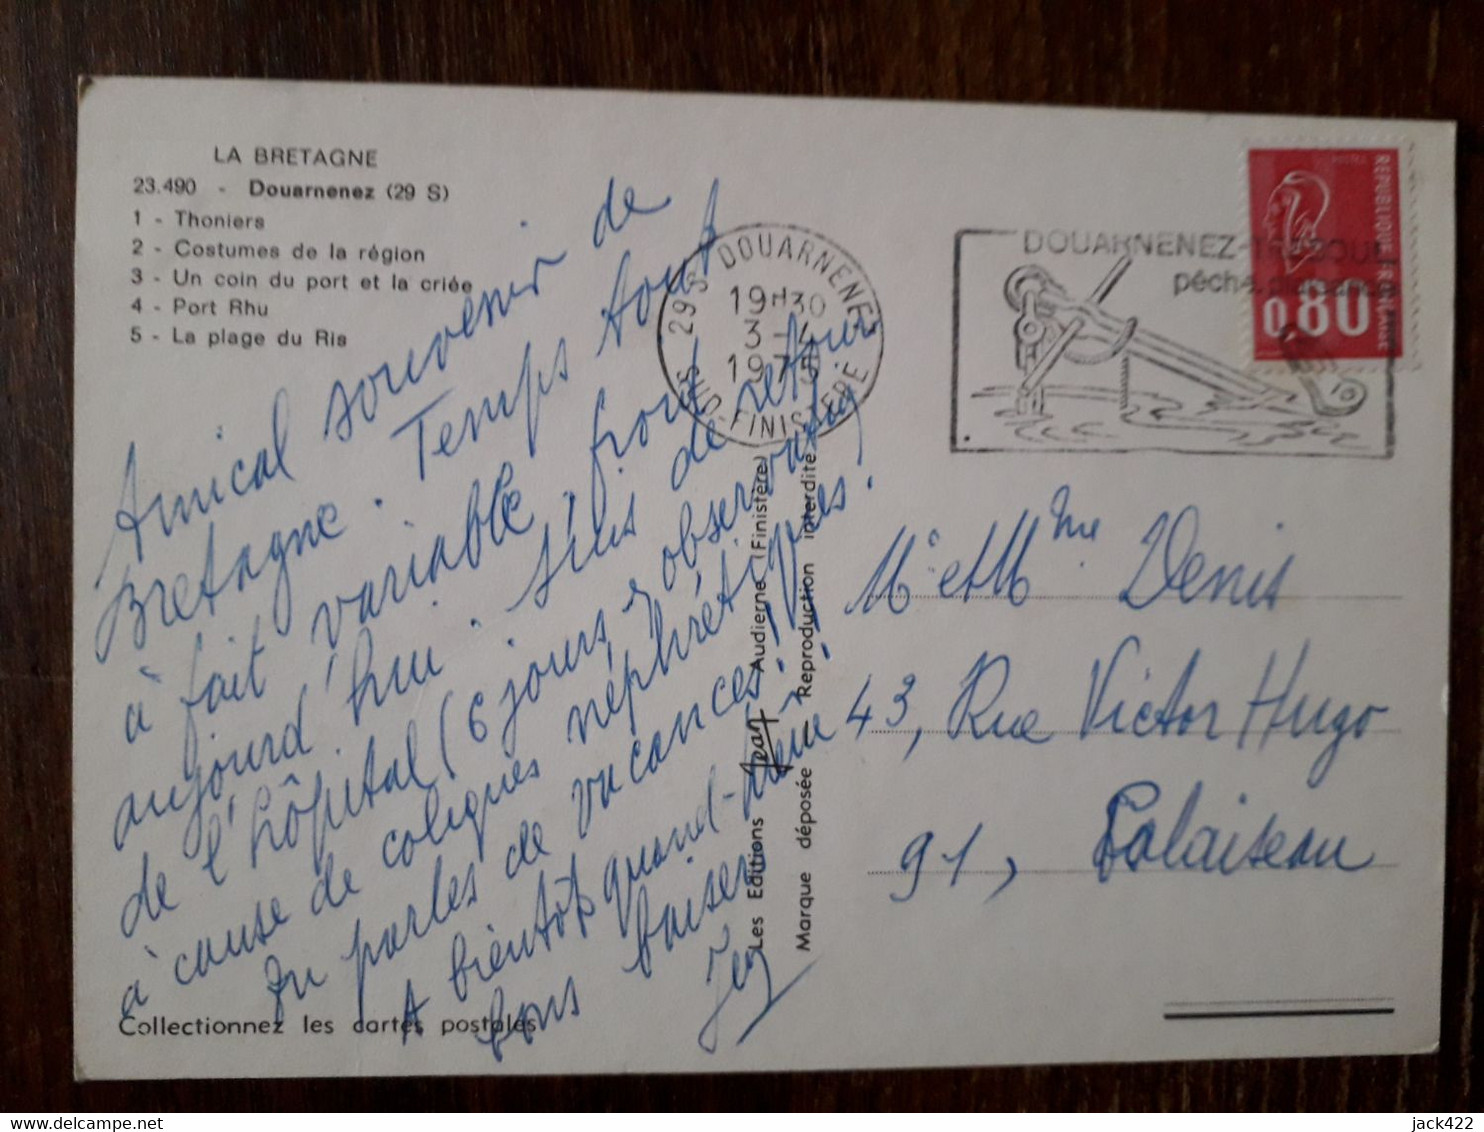 LA BRETAGNE
23.490 - Douarnenez (29 S)
1 - Thoniers
2 - Costumes de la région
3 - Un coin du port et la criée
4 - Port Rhu
5 - La plage du Ris
Amical souvenir de
Bretagne. Temps tout
à fait variable, froid
aujourd'hui. Suis de retour
de l'hôpital (6 jours
observation)
à cause de coliques néphrétiques.
Tu parles de vacances!
A bientôt quand-même
bons baisers
Collectionnez les cartes postales
Les Editions Jean Audierne (Finistère)
Marque déposée Reproduction interdite
29 S DOUARNENEZ
19H30
3-4
1975
SUD-FINISTERE
DOUARNENEZ-TREBOUL
pêche plaisance
REPUBLIQUE-FRANÇAISE
0,80
Mr et Mme Denis
43, Rue Victor Hugo
91, Palaiseau
delcampe.net
jack422